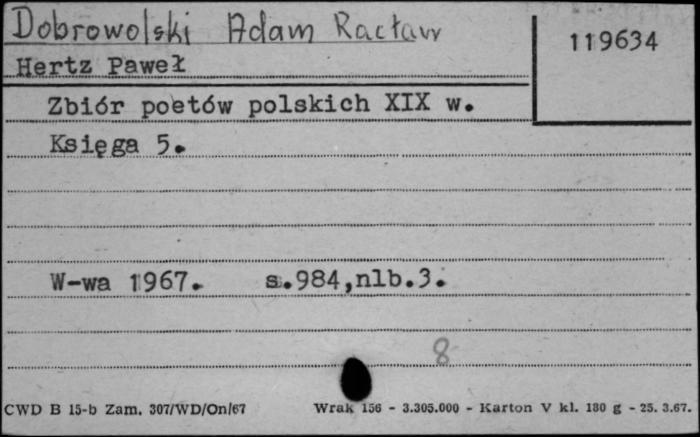 Dobrowolski Adam Racław
119634
Hertz Paweł
Zbiór poetów polskich XIX w.
Księga 5.
W-wa 1967. s.984,nlb.3.
8
CWD B 15-b Zam. 307/WD/On/67 Wrak 156 - 3.305.000 - Karton V kl. 180 g - 25. 3.67.